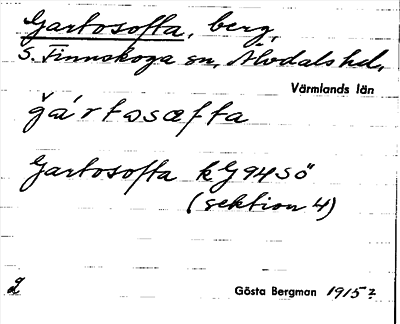 Gartosoffa, berg,
S. Finnskoga sn, Älvdals hd,
Värmlands län
gártosaffa
Gartosoffa kG 94 SÖ
(sektion 4)
2 Gösta Bergman 1915?